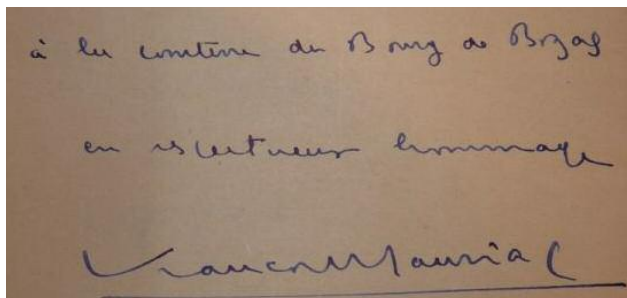 à la comtesse du Bourg de Bozas
en respectueux hommage
François Mauriac